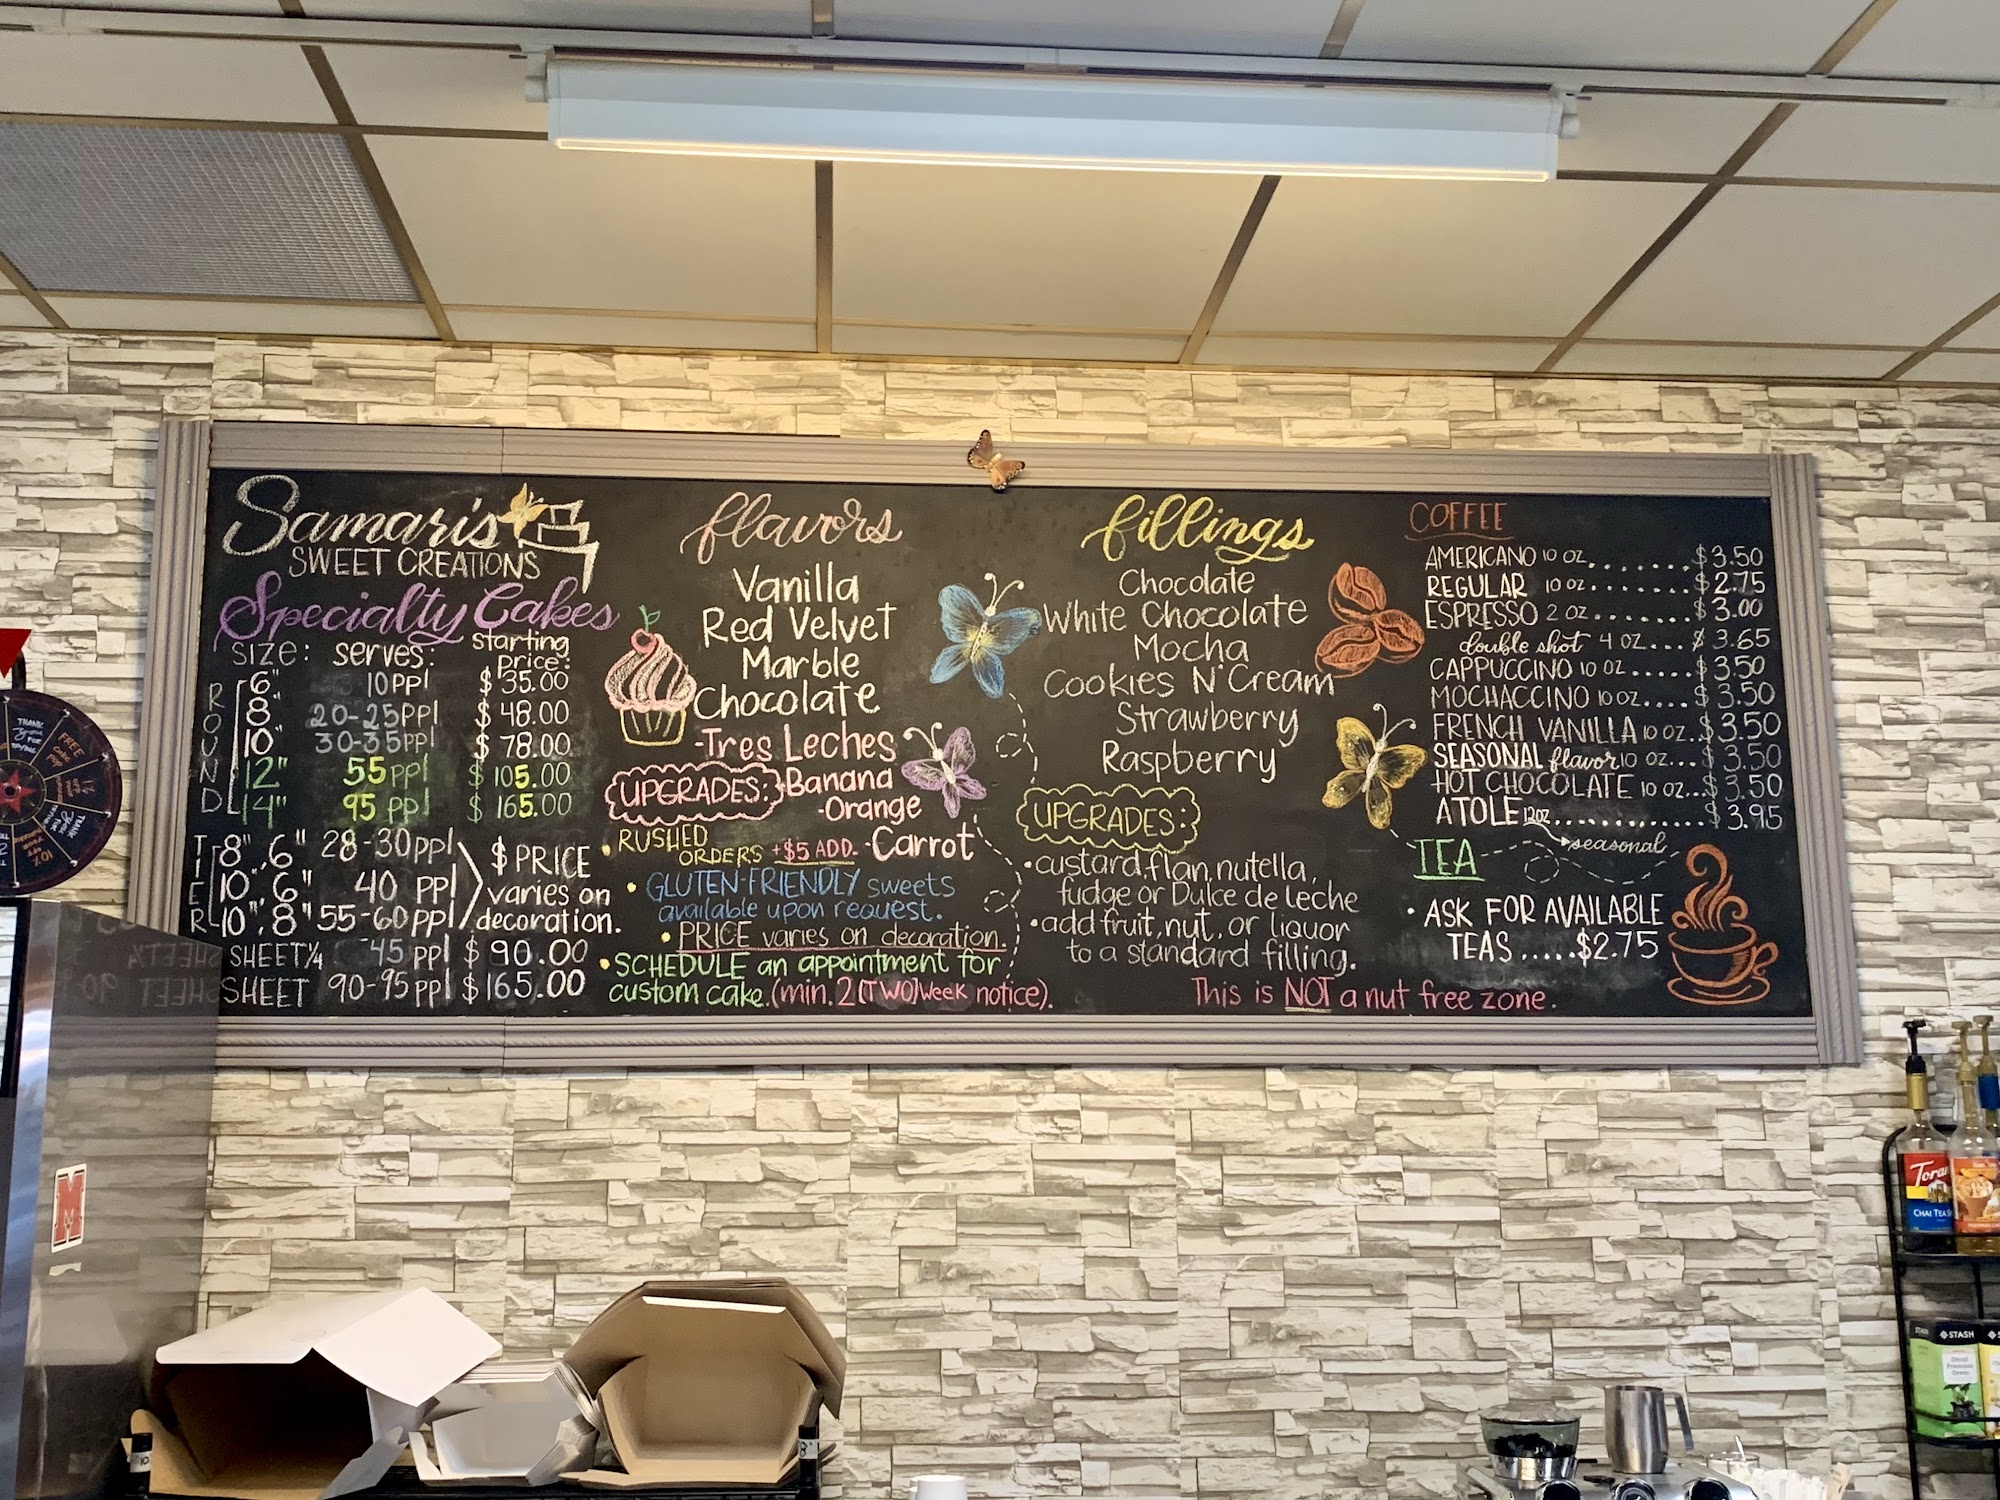 Samaris
SWEET CREATIONS
Specialty Cakes
SIZE: serves: starting price:
ROUND
6" 10ppl $35.00
8" 20-25ppl $48.00
10" 30-35ppl $78.00
12" 55ppl $105.00
14" 95 ppl $165.00
TIER
8", 6" 28-30ppl
10", 6" 40 ppl
10", 8" 55-60ppl
$ PRICE
varies on
decoration.
SHEET 1/4 45 ppl $90.00
SHEET 90-95ppl $165.00
flavors
Vanilla
Red Velvet
Marble
Chocolate
UPGRADES:
-Tres Leches
-Banana
-Orange
-Carrot
• RUSHED
ORDERS +$5 ADD.
• GLUTEN-FRIENDLY sweets
available upon request.
• PRICE varies on decoration.
• SCHEDULE an appointment for
custom cake. (min. 2(TWO)week notice).
fillings
Chocolate
White Chocolate
Mocha
Cookies N' Cream
Strawberry
Raspberry
UPGRADES:
• custard, flan, nutella,
fudge or Dulce de leche
• add fruit, nut, or liquor
to a standard filling.
This is NOT a nut free zone.
COFFEE
AMERICANO 10 OZ........$3.50
REGULAR 10 OZ........$2.75
ESPRESSO 2 OZ........$3.00
double shot 4 OZ....$3.65
CAPPUCCINO 10 OZ.....$3.50
MOCHACCINO 10 OZ....$3.50
FRENCH VANILLA 10 OZ..$3.50
SEASONAL flavor 10 OZ...$3.50
HOT CHOCOLATE 10 OZ...$3.50
ATOLE 12OZ.............$3.95
seasonal
TEA
• ASK FOR AVAILABLE
TEAS.....$2.75
THANK
you
FOR
FREE
10%
M
Torani
CHAI TEA
STASH
STASH
Decaf
Premium
Green
8"